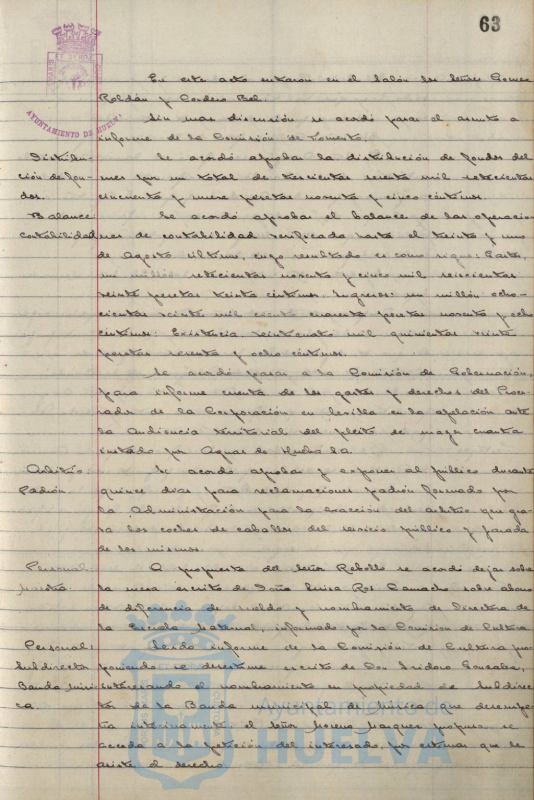 63
AYUNTAMIENTO DE HUELVA
En este acto entraron en el Salón los Señores Gomez
Roldán y Cordero Bel.
Sin mas discusión se acordó pasar el asunto a
informe de la Comisión de Fomento.
Distribu- Se acordó aprobar la distribución de fondos del
ción de fon- mes por un total de trescientas sesenta mil setecientas
dos. cincuenta y nueve pesetas noventa y cinco céntimos.
Balance Se acordó aprobar el balance de las operacio-
contabilidad nes de contabilidad verificadas hasta el treinta y uno
de Agosto último, cuyo resultado es como sigue: Gastos,
un millón setecientas noventa y cinco mil seiscientas
veinte pesetas treinta céntimos. Ingresos: un millón ocho-
cientas veinte mil ciento cuarenta pesetas noventa y ocho
céntimos: Existencia, veinticuatro mil quinientas veinte
pesetas sesenta y ocho céntimos.
Se acordó pasar a la Comisión de Gobernación,
para informe cuenta de los gastos y derechos del Procu-
rador de la Corporación en Sevilla en la apelación ante
la Audiencia territorial del pleito de mayor cuantía
instado por Aguas de Huelva.
Arbitrio: Se acordó aprobar y exponer al público durante
Padrón. quince días para reclamaciones padrón formado por
la Administración para la exacción del arbitrio que gra-
va los coches de caballos del servicio público y parada
de los mismos.
Personal: A propuesta del Señor Rebollo se acordó dejar sobre
Maestra. la mesa escrito de Doña Luisa Ros Camacho sobre abono
de diferencia de sueldo y nombramiento de Directora de
la Escuela Maternal, informado por la Comisión de Cultura
Personal: Leido informe de la Comisión de Cultura pro-
Subdirector poniendo se desestime escrito de Don Isidoro
Banda Músi- interesando el nombramiento en propiedad de Subdirec-
ca tor de la Banda municipal de Música que desempe-
ña interinamente, el Señor Moreno Marquez propuso se
acceda a la petición del interesado, por estimar que le
asiste el derecho.
Ayuntamiento de
HUELVA